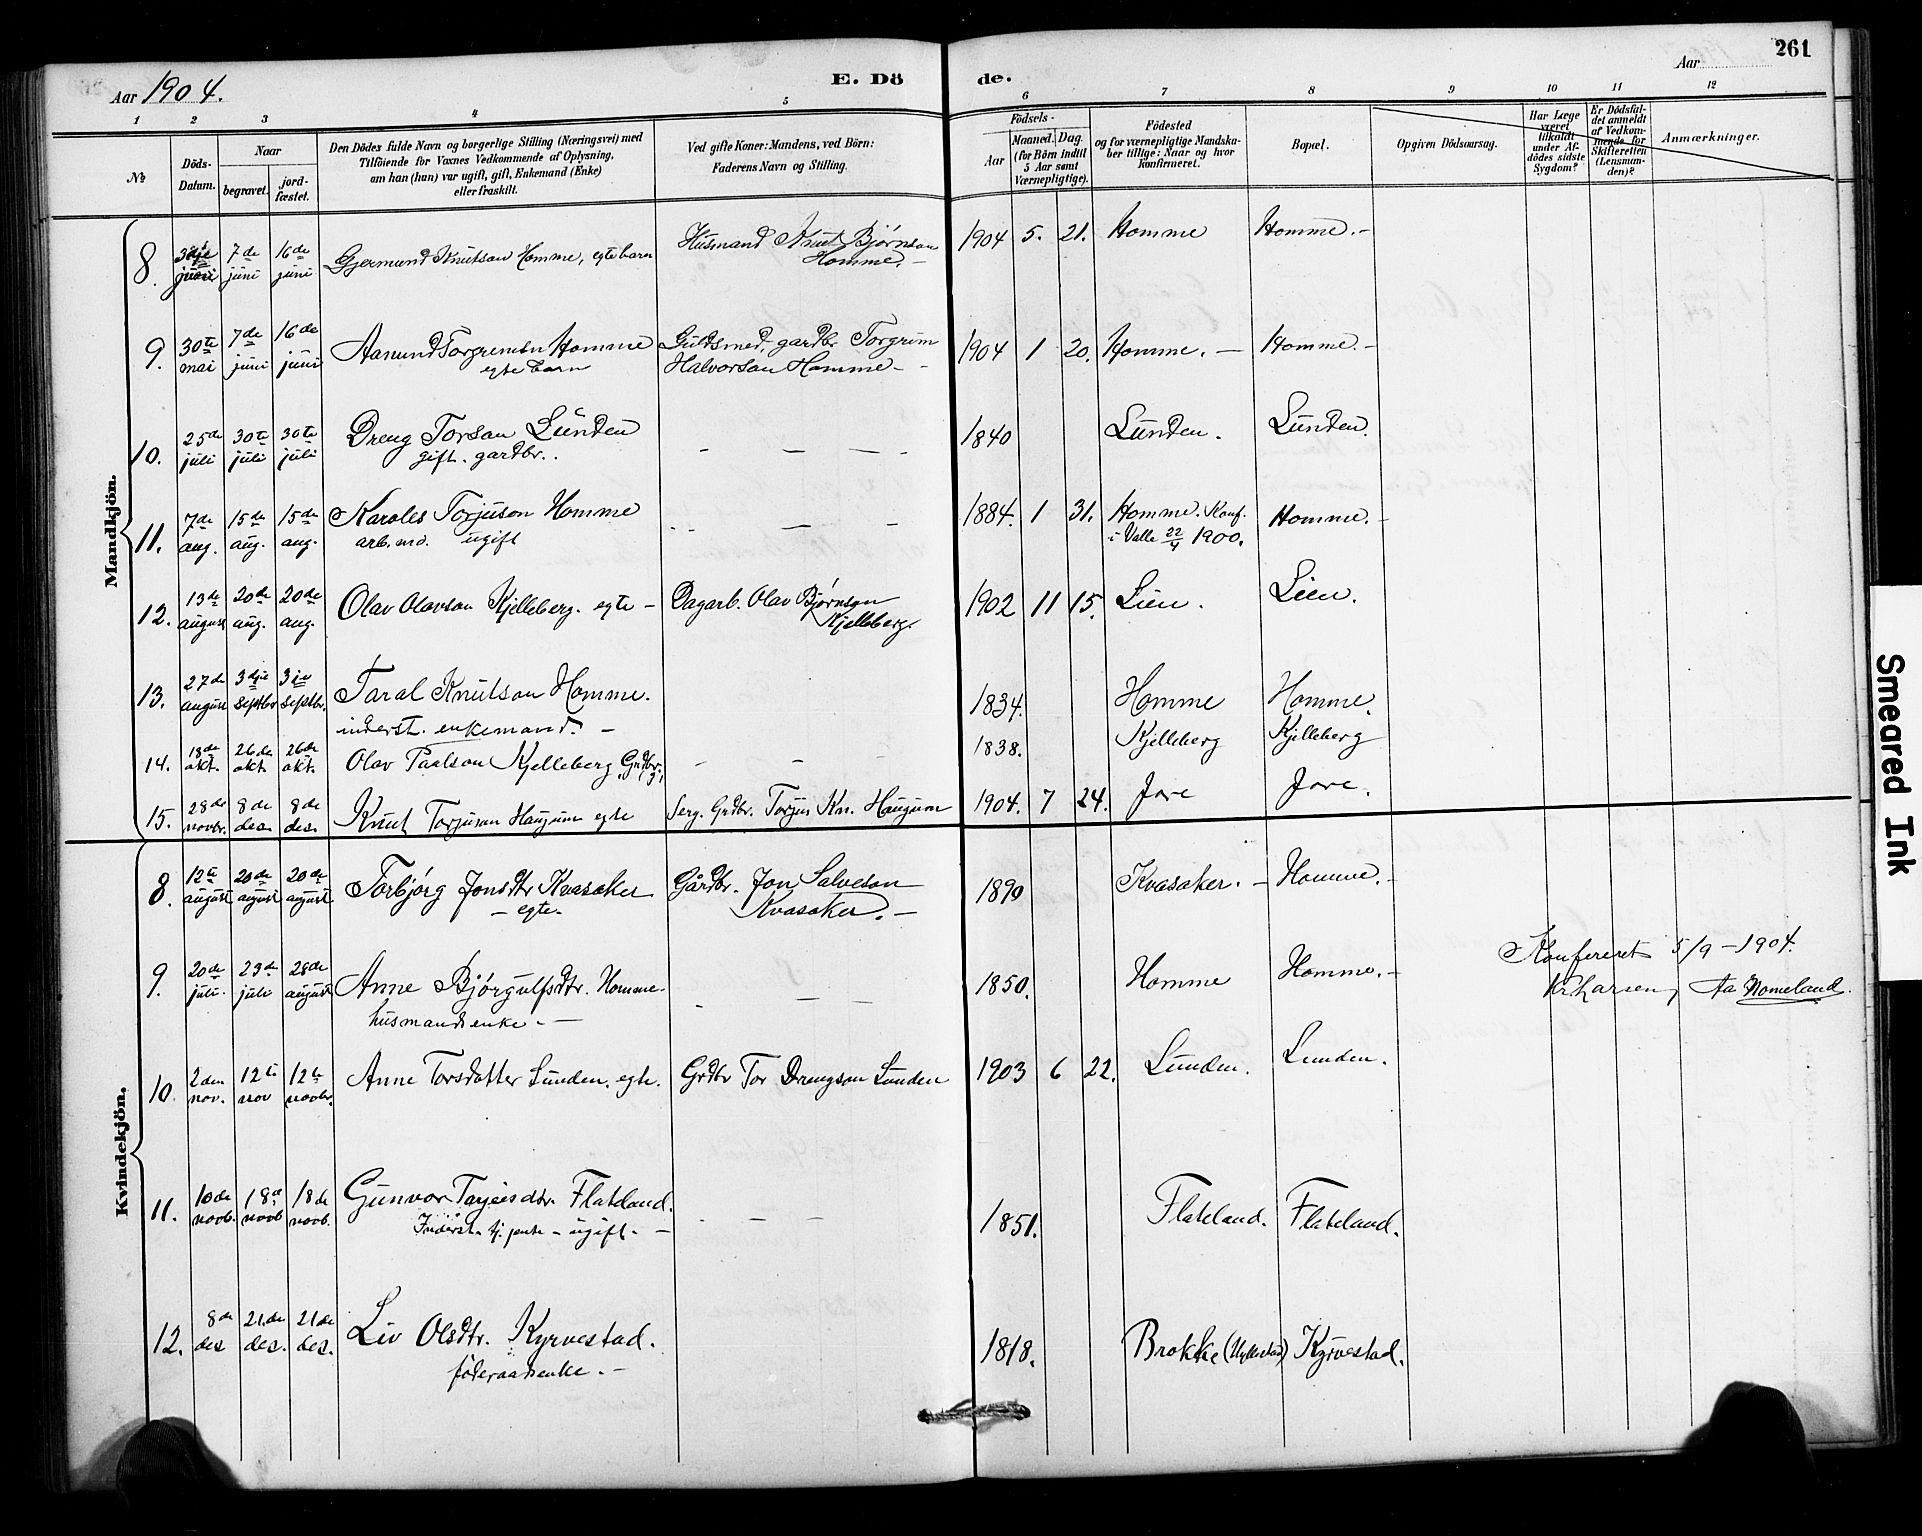 261
Aar 1904.
E. Dö de.
Aar
1 2 3 4 5 6 7 8 9 10 11 12
№
Döds-Datum.
Naar
begravet.
jord-fæstet.
Den Dödes fulde Navn og borgerlige Stilling (Næringsvei) med
Tilföiende for Voxnes Vedkommende af Oplysning,
om han (hun) var ugift, gift, Enkemand (Enke)
eller fraskilt.
Ved gifte Koner: Mandens, ved Börn:
Faderens Navn og Stilling.
Födsels-
Aar
Maaned. Dag.
(for Börn indtil
5 Aar samt
Værnepligtige).
Födested
og for værnepligtige Mandska-
ber tillige: Naar og hvor
konfirmeret.
Bopæl.
Opgiven Dödsaarsag.
Har Læge
været
tilkaldt
under Af-
dödes sidste
Sygdom?
Er Dödsfal-
det anmeldt
af Vedkom-
mende for
Skifteretten
(Lensman-
den)?
Anmærkninger.
Mandkjön.
8. 3dje juni 7de juni 16de juni Gjermund Knutson Homme, egte barn Husmand Knut Bjørnson Homme. 1904 5. 21. Homme Homme.
9. 30te mai 7de juni 16de juni Aanund Torgrimsn Homme egte barn Guldsmed, gardbr. Torgrim Halvorson Homme 1904 1 20. Homme. Homme.
10. 25de juli 30te juli 30te juli Dreng Torson Lunden gift. gardbr. 1840 Lunden. Lunden.
11. 7de aug. 15de aug. 15de aug. Karoles Torjuson Homme arb.md. ugift 1884. 1 31. Homme. Konf. i Valle 22/4 1900. Homme.
12. 13de august 20de aug. 20de aug. Olav Olavson Kjelleberg. egte Dagarb. Olav Bjørnson Kjelleberg. 1902 11 15. Lien. Lien.
13. 27de august 3dje septbr 3je septbr. Taral Knutson Homme. inderst. enkemand. 1834. Homme Homme.
14. 18de okt. 26de okt. 26de okt. Olav Paalson Kjelleberg, Grdbr. g. 1838. Kjelleberg Kjelleberg
15. 28de novbr. 8de des. 8de des. Knut Torjuson Haugum egte Serg. Grdbr. Torjus Kn. Haugum 1904. 7 24. Jore Jore.
Kvindekjön.
8. 12te august 20de august 20de august Torbjørg Jonsdtr Kvasaker egte. Gårdbr. Jon Salveson Kvasaker. 1890 Kvasaker. Homme.
9. 20de juli. 23de juli 28de august Anne Bjørgulfsdtr. Homme husmandsenke. 1850. Homme Homme. Konfereret 5/9 - 1904.
Kr. Larsen, Aa Nomeland.
10. 2den nov. 12te nov 12te novbr. Anne Torsdatter Lunden. egte. Grdbr Tor Drengson Lunden 1903 6 22. Lunden. Lunden.
11. 10de novb. 18de novb 18de novb. Gunvor Tarjeisdtr. Flateland. Inderst. tj. jente - ugift. 1851. Flateland. Flateland.
12. 8de des 21de des. 21de des. Liv Olsdtr. Kyrvestad. föderaadsenke. 1818. Brokke (Hyllestad) Kyrvestad.
Smeared Ink